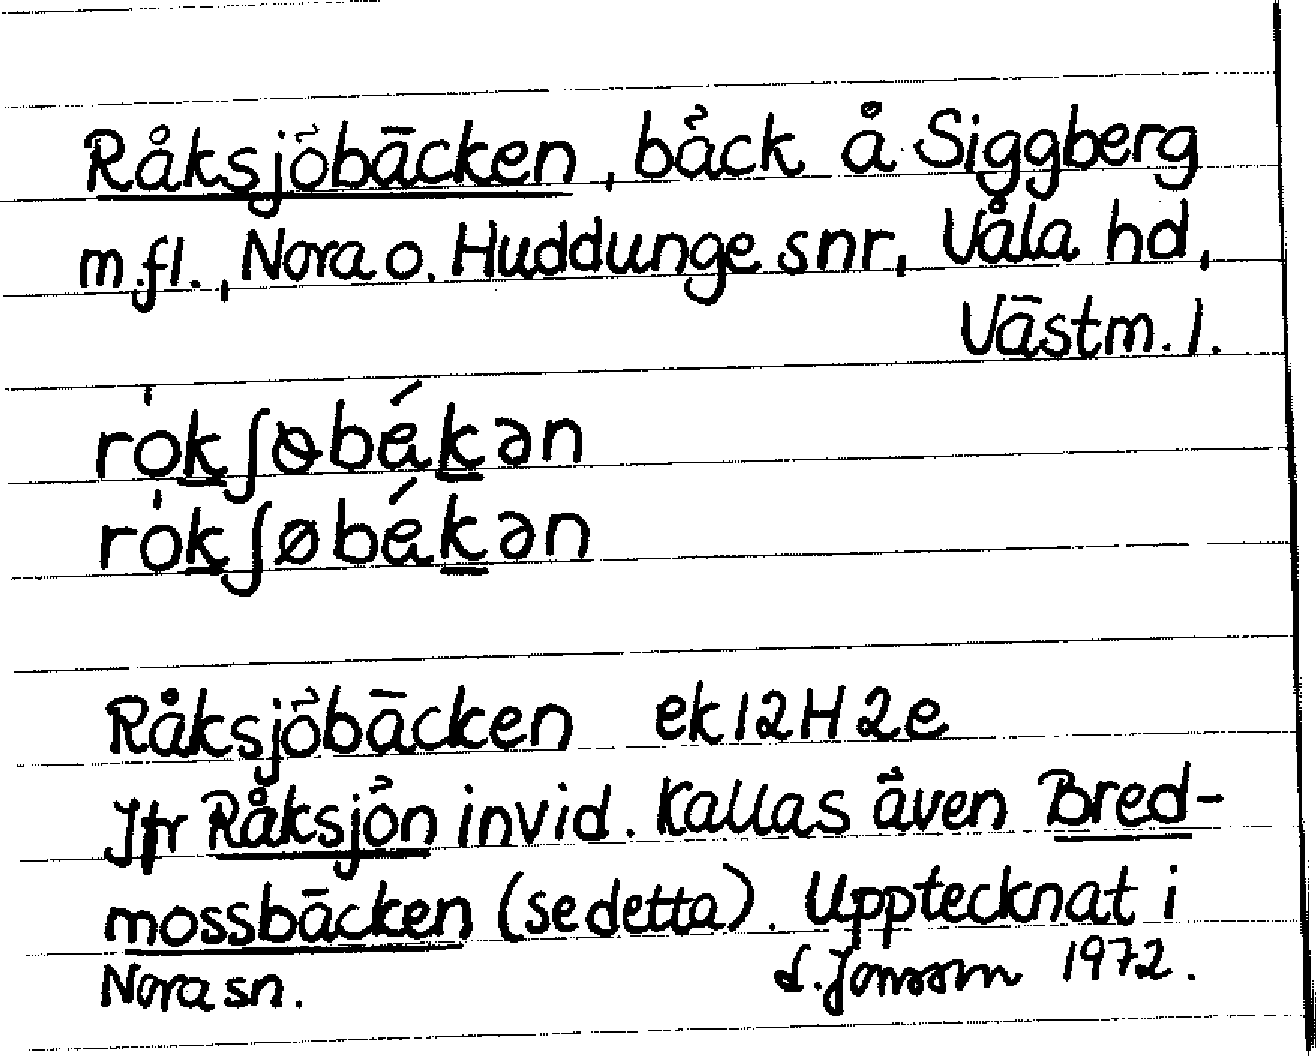 Råksjöbäcken, bäck å Siggberg
m.fl., Nora o. Huddunge snr, Våla hd,
Västm. l.
rókʃɵbǽkən
rókʃøbǽkən
Råksjöbäcken ek 12H2e
Jfr Råksjön invid. Kallas även Bred-
mossbäcken (se detta). Upptecknat i
Nora sn.
L. Jonsson 1972.